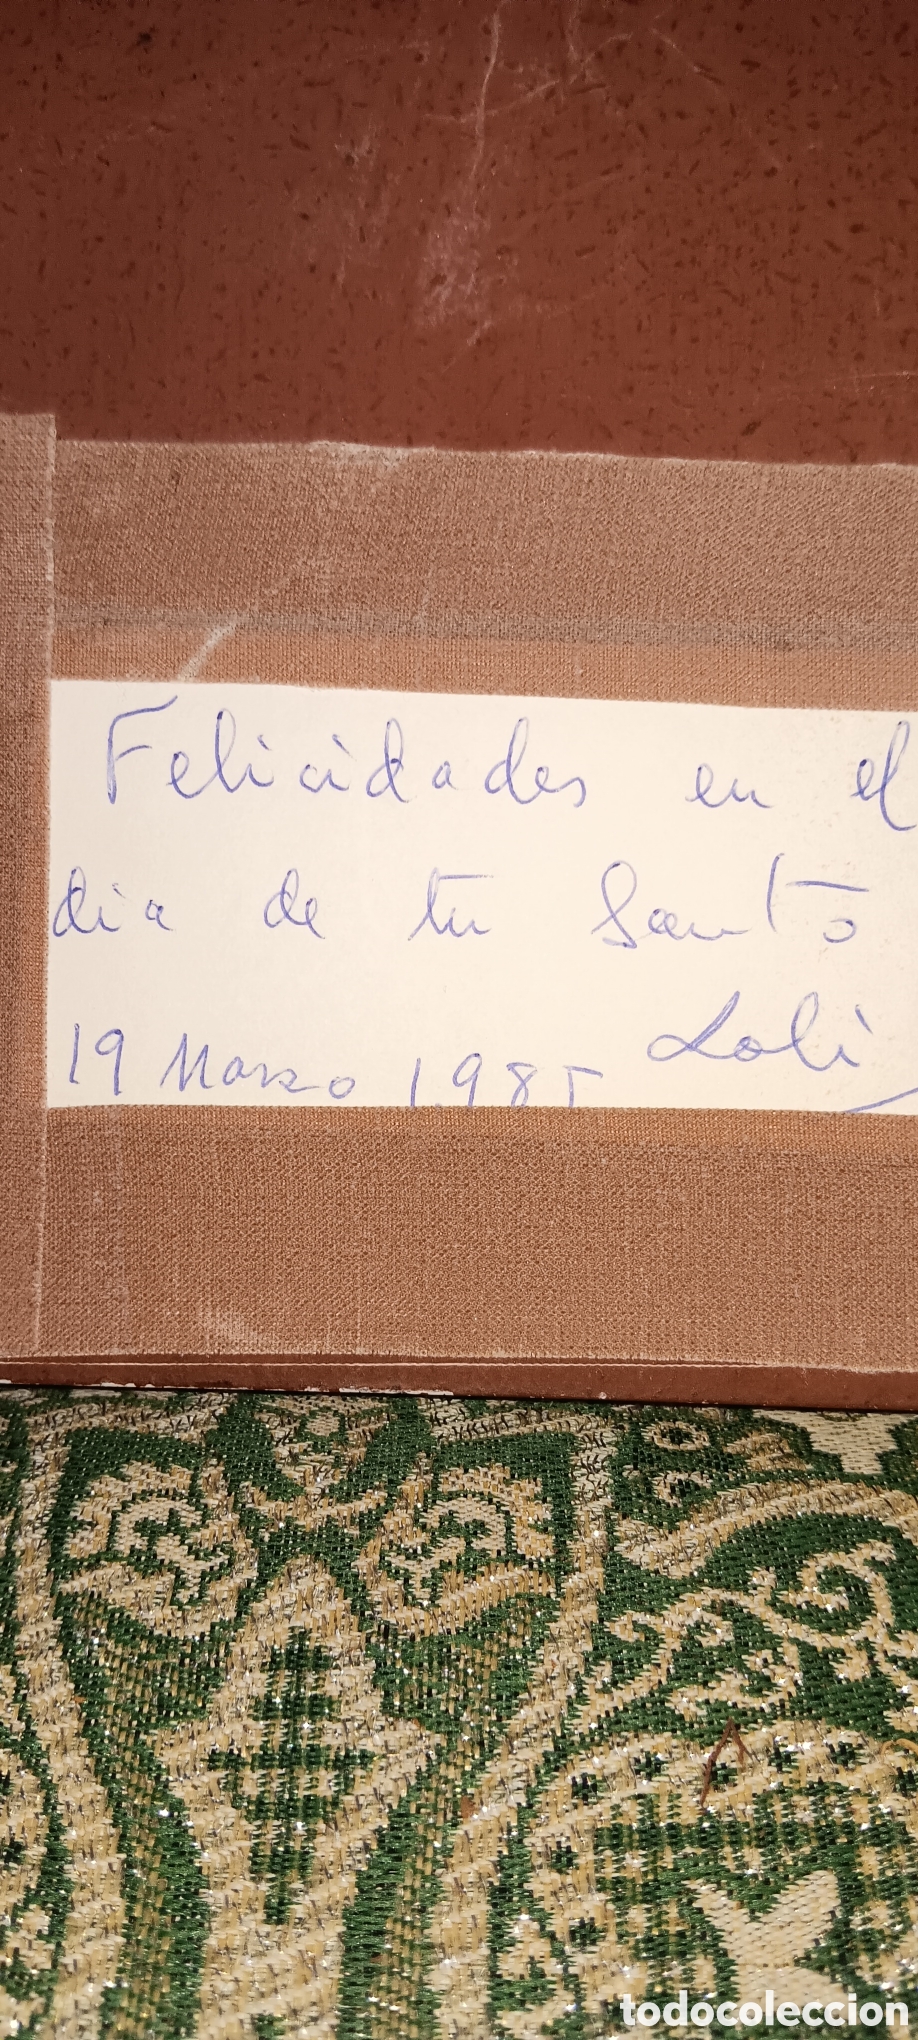 Felicidades en el
dia de tu Santo
Loli
19 Marzo 1.985
todocoleccion